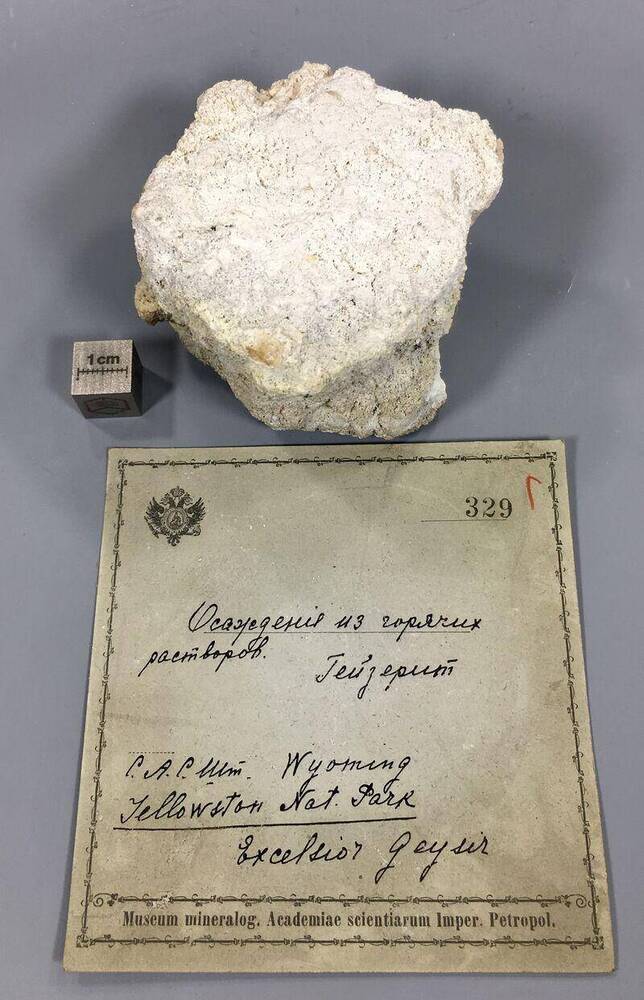 1 cm
329
Осаждения из горячих
растворов.
Гейзерит
С. А. С. Шт. Wyoming
Yellowston Nat. Park
Excelsior Geysir
Museum mineralog. Academiae scientiarum Imper. Petropol.